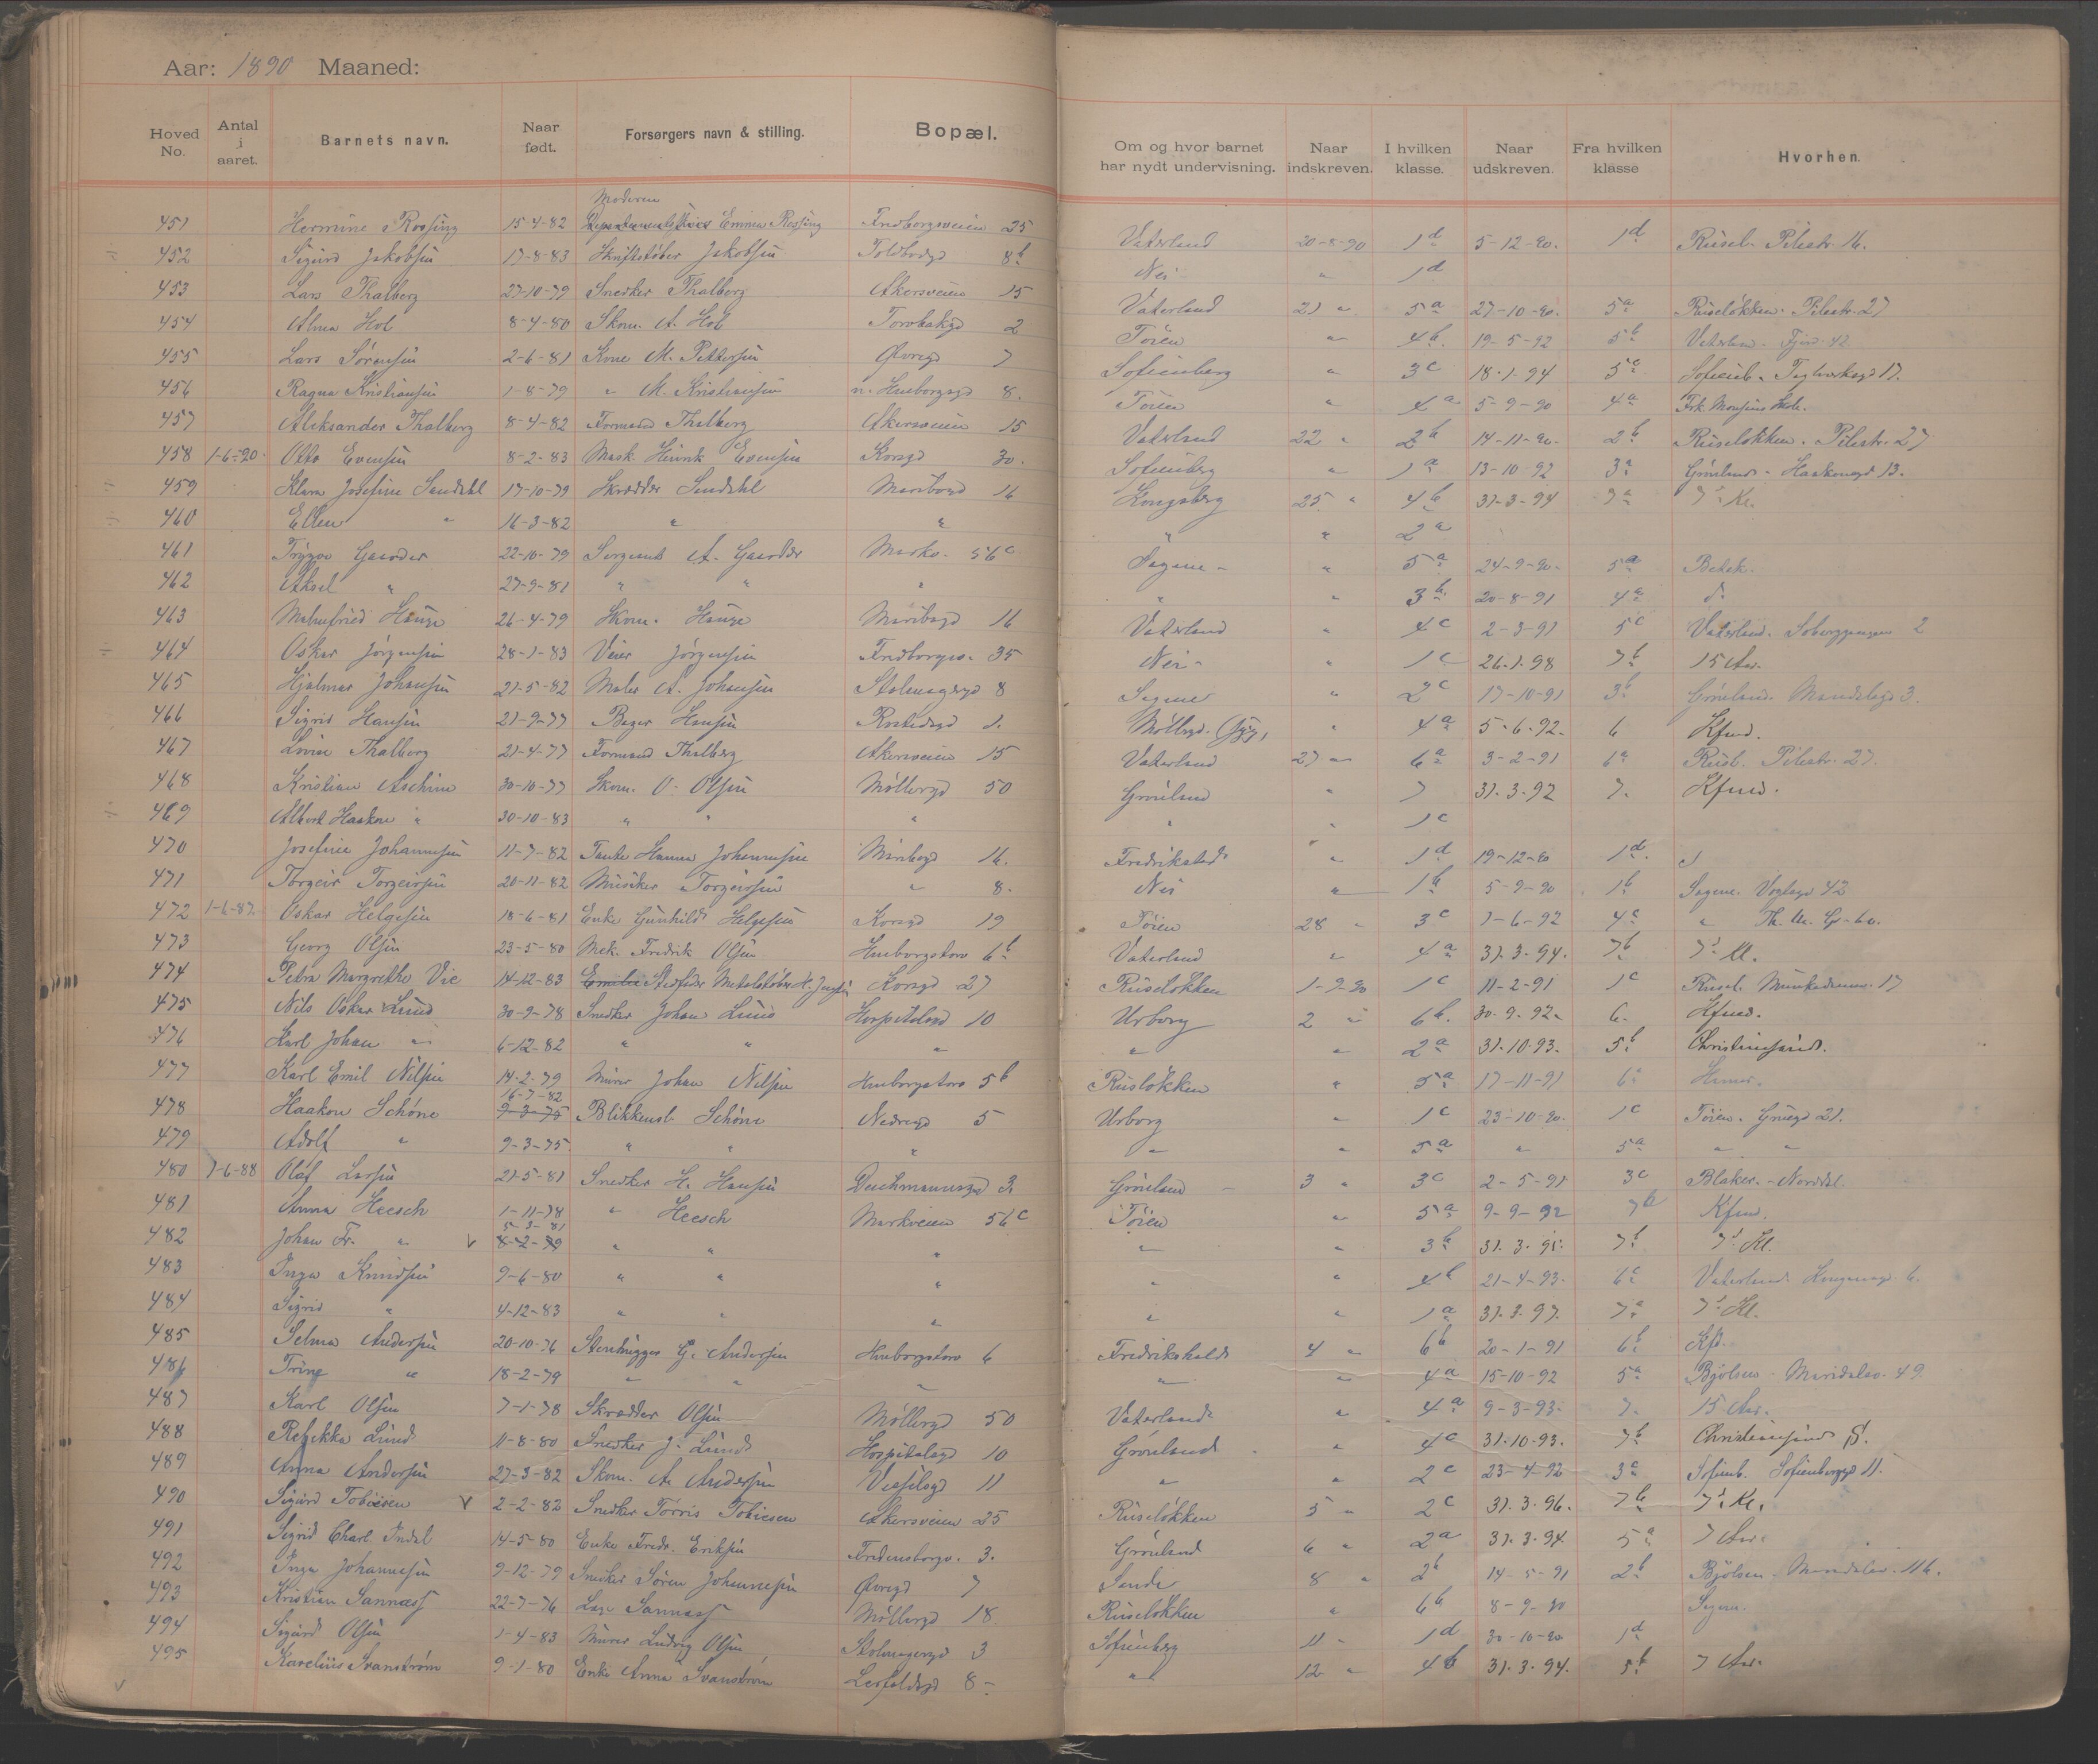 Aar: 1890 Maaned:
Hoved No. Antal i aaret. Barnets navn. Naar født. Forsørgers navn & stilling. Bopæl. Om og hvor barnet har nydt undervisning. Naar indskreven. I hvilken klasse. Naar udskreven. Fra hvilken klasse Hvorhen.
Moderen
451 Hermine Rossing 15-4-82 Emma Rossing 25 Vaterland 20-8-90 1d 5-12-90. 1d Rusel. Pilestr. 16.
452 Sigurd Jakobsen 17-8-83 Skriftstøber Jakobsen Toldbodgd 8b Nei " 1d
453 Lars Thalberg 27-10-79 Snedker Thalberg Akersveien 15 Vaterland 21 " 5a 27-10-90. 5a Ruseløkken. Pilestr. 27
454 Alma Hol 8-4-80 Skom. A. Hol Torvbakgd 2 Tøien " 4b. 19-5-92 5b Vaterland. 42
455 Lars Sørensen 2-6-81 Kone M. Pettersen Øvregd 7 Sofienberg " 3c 18-1-94 5c Sofienb. Teglverksgd 17.
456 Ragna Kristiansen 1-8-79 " M. Kristiansen n. Hausborgsgd 8. Tøien " 4a 5-9-90 4a Frk. Monsens Skole.
457 Aleksander Thalberg 8-4-82 Formand Thalberg Akersveien 15 Vaterland 22 " 2b 14-11-90. 2b Ruseløkken. Pilestr. 27
458 1-6-90. Otto Evensen 8-2-83 Mask. Henrik Evensen Korsgd 30. Sofienberg " 1a 13-10-92 3a Grønland - Haakonsgd 13.
459 Klara Josefine Sendahl 17-10-79 Skrædder Sendahl Maribogd 16 Kongsberg 25 " 4b 31-3-94 7a 7' Kl.
460 Ellen " 16-3-82 " " " " 2a
461 Trygve Gaarder 22-10-79 Sergeant A. Gaarder Markv. 56c Sagene - " 5a 24-9-90- 5a Betek.
462 Aksel " 27-9-81 " " " " " 3b. 20-8-91 4a d.
463 Malmfried Hauge 26-4-79 Skom. Hauge Maribogd 16 Vaterland " 4c 2-3-91 5c Vaterland. 2
464 Oskar Jørgensen 28-1-83 Veier Jørgensen Fredborgv. 35 Nei - " 1c 26.1.98 7b 15 Aar.
465 Hjalmar Johansen 21-5-82 Maler A. Johansen Stolmagergd 8 Sagene " 2c 17-10-91 3b Grønland. Mandalsgd 3.
466 Sigrid Hansen 21-9-77 Bager Hansen Rostedsgd 1. Møllergd. " 4a 5-6-92. 6 Kfmd.
467 Lovise Thalberg 21-4-77 Formand Thalberg Akersveien 15 Vaterland 27 " 6a 3-2-91 6a Rusel. Pilestr. 27.
468 Kristian Aschim 30-10-77 Skom. O. Olsen Møllergd 50 Grønland " 7 31.3.92 7. Kfmd.
469 Albert Haakon " 30-10-83 " " " " " 1c
470 Josefine Johannesen 11-7-82 Tante Hanna Johannesen Maribogd 16. Fredrikstad " 1d 19-12-90 1d.
471 Torgeir Torgeirsen 20-11-82 Musiker Torgeirsen " 8. Nei " 1b 5-9-90 1b Sagene. Vogtsgd 42
472 1-6-87. Oskar Helgesen 18-6-81 Enke Gunhild Helgesen Korsgd 19 Tøien 28 " 3c 1-6-92 4c "
473 Georg Olsen 23-5-80 Mek. Fredrik Olsen Hausborgstorv 6b Vaterland " 4a 31.3.94. 7b 7' Kl.
474 Petra Margrethe Vie 14-12-83 Stedfader Metalstøber H. Jensen Korsgd 27 Ruseløkken 1-9-90 1c 11-2-91 1c Rusel. Munkedamsv. 17
475 Nils Oskar Lund 30-9-78 Snedker Johan Lund Hospitalsgd 10 Urborg 2 " 6b. 30.9.92. 6. Kfmd.
476 Karl Johan " 6-12-82 " " " " " 2a 31.10.93. 5b Christiansand.
477 Karl Emil Nilsen 14-2-79 Murer Johan Nilsen Hausborgstorv 5b Rusløkken " 5a 17-11-91 6a
16-7-82
478 Haakon Schøne 9-3-75 Blikkensl. Schøne Nedregd 5 Urborg " 1c 23-10-90. 1c Tøien. Grüngd 21.
479 Adolf " 9-3-75 " " " " " 5a " 5a " "
480 1-6-88 Olaf Larsen 21-5-81 Snedker H. Hansen Deichmannsgd 3. Grønland - 3 " 3c 2-5-91 3c Blaker. - Norddal.
481 Anna Heesch 1-11-78 " Heesch Markveien 56c Tøien " 5a 9-9-92 7b Kfmd.
5-3-81
482 Johan Fr. " v 8-2-79 " " " " " 3b 31.3.95. 7b 7' Kl.
483 Inga Knudsen 9-6-80 " " " " " 4b 21-4-93. 6c Vaterland. Kongensgd 6.
484 Sigrid " 4-12-83 " " " " " 1a 31.3.97. 7a 7' Kl.
485 Selma Andersen 20-10-76 Stenhugger G. Andersen Hausborgstorv 6 Fredrikshald 4 " 6b 20-1-91 6b Kfd.
486 Trine " 18-2-79 " " " " " 4a 15-10-92 5a Bjølsen - Maridalsv. 49.
487 Karl Olsen 7-1-78 Skrædder Olsen Møllergd 50 Vaterland " 4a 9-3-93. 7. 15 Aar.
488 Rebekka Lund 11-8-80 Snedker J. Lund Hospitalsgd 10 Grønland " 4c 31.10.93. 7b Christiansand S.
489 Anna Andersen 27-3-82 Skom. A. Andersen Vesselsgd 11 " " 2c 23-4-92 3c Sofienb. Sofienberggd 11.
490 Sigurd Tobiesen v 2-2-82 Snedker Torris Tobiesen Akersveien 25 Ruseløkken 5 " 2c 31.3.96. 7b 7' Kl.
491 Sigrid Charl. Indal 14-5-80 Enke Fredr. Eriksen Fredensborgv. 3. Grønland 6 " 2a 31.3.94. 5a 7 Aar.
492 Inga Johannesen 9-12-79 Snedker Søren Johannesen Øvregd 7 Sande 8 " 2b 14-5-91 2b Bjølsen - Maridalsv. 116.
493 Kristian Sannass 22-7-76 Sannass Møllergd 18 Ruseløkken " 6b 8-9-90 Sagene.
494 Sigurd Olsen 1-4-83 Murer Ludvig Olsen Stolmagergd 3 Sofienberg 11 - 1d 30-10-90 1d
495 Karelius Svanstrøm 9-1-80 Enke Anna Svanstrøm Lerfaldsgd 8 - " 12 " 4b 31.3.94. 5b 7 Aar.
v